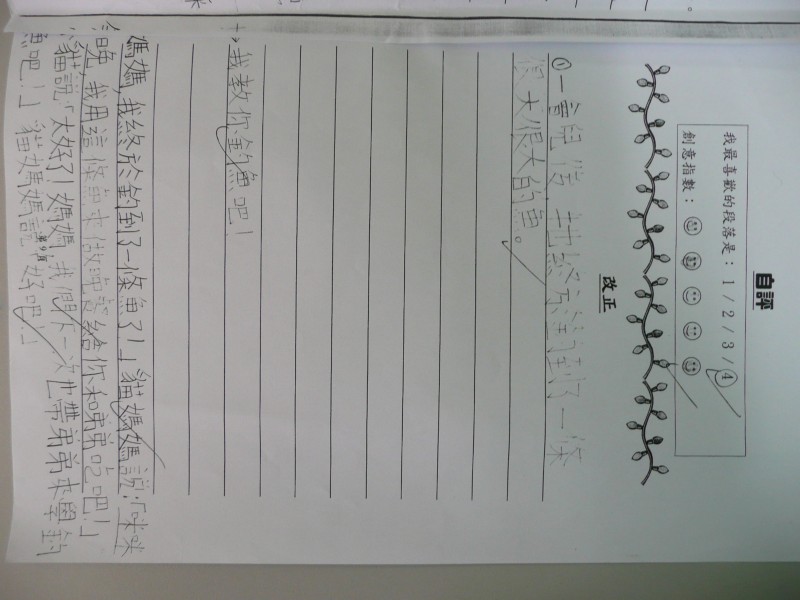 自評
我最喜歡的段落是：1 / 2 / 3 / ④
創意指數：
改正
①一會兒後，咪咪終於釣到了一條
很大很大的魚。
我教你釣魚吧！
媽媽，我終於釣到了一條魚了！」貓媽媽說：「咪咪
今晚，我用這條魚來做晚餐給你和弟弟吃吧！」
小貓說「太好了！媽媽，我們下一次也帶弟弟來學釣
魚吧！」貓媽媽說「好吧！」